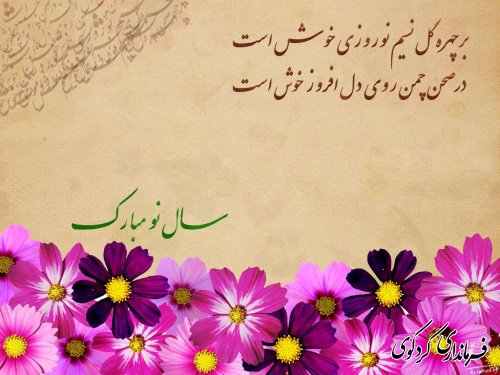 بر چهره گل نسیم نوروزی خوش است
در صحن چمن روی دل افروز خوش است
سال نو مبارک
فرمانداری کردکوی